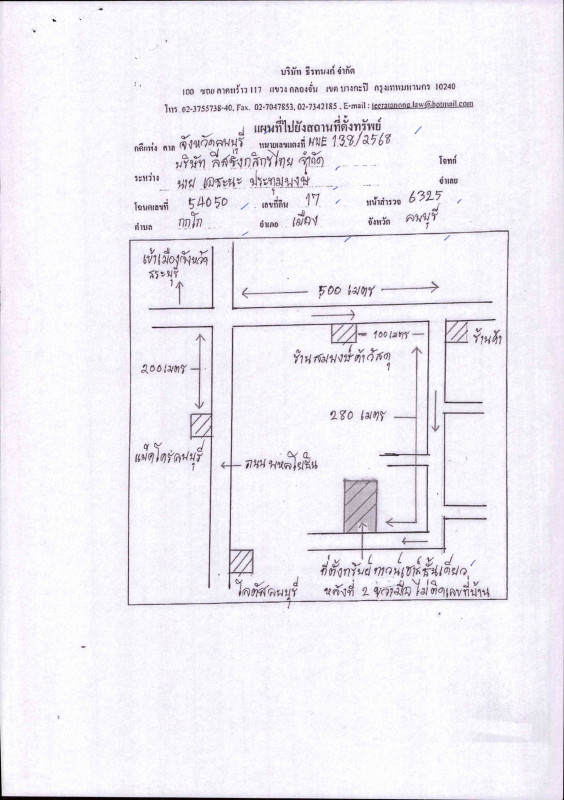 บริษัท ธีรทนงก์ จำกัด
100 ซอย ลาดพร้าว 117 แขวง คลองจั่น เขต บางกะปิ กรุงเทพมหานคร 10240
โทร. 02-3755738-40, Fax. 02-7047853, 02-7342185 , E-mail : teeratanong.law@hotmail.com
แผนที่ไปยังสถานที่ตั้งทรัพย์
คดีแห่ง ศาล จังหวัดลพบุรี หมายเลขแดงที่ ผบE 138/2568
บริษัท ลีสซิ่งกสิกรไทย จำกัด โจทก์
ระหว่าง
นาย เดชะนะ ประทุมพงษ์ จำเลย
โฉนดเลขที่ 54050 เลขที่ดิน 17 หน้าสำรวจ 6325
ตำบล กกโก อำเภอ เมือง จังหวัด ลพบุรี
เข้าเมืองจังหวัด
สระบุรี
500 เมตร
100 เมตร
ร้านค้า
ร้านสมพงษ์ค้าวัสดุ
200 เมตร
280 เมตร
แม็คโครลพบุรี
ถนนพหลโยธิน
ที่ตั้งทรัพย์ทาวน์เฮาส์ชั้นเดียว
หลังที่ 2 ขวามือ ไม่ติดเลขที่บ้าน
โลตัสลพบุรี